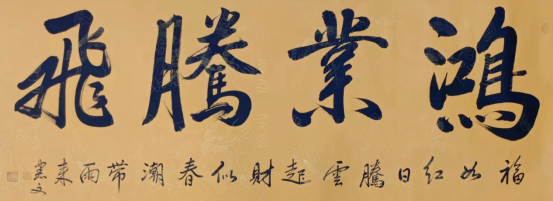 鴻業騰飛
福如紅日騰雲起財似春潮帶雨來
憲文